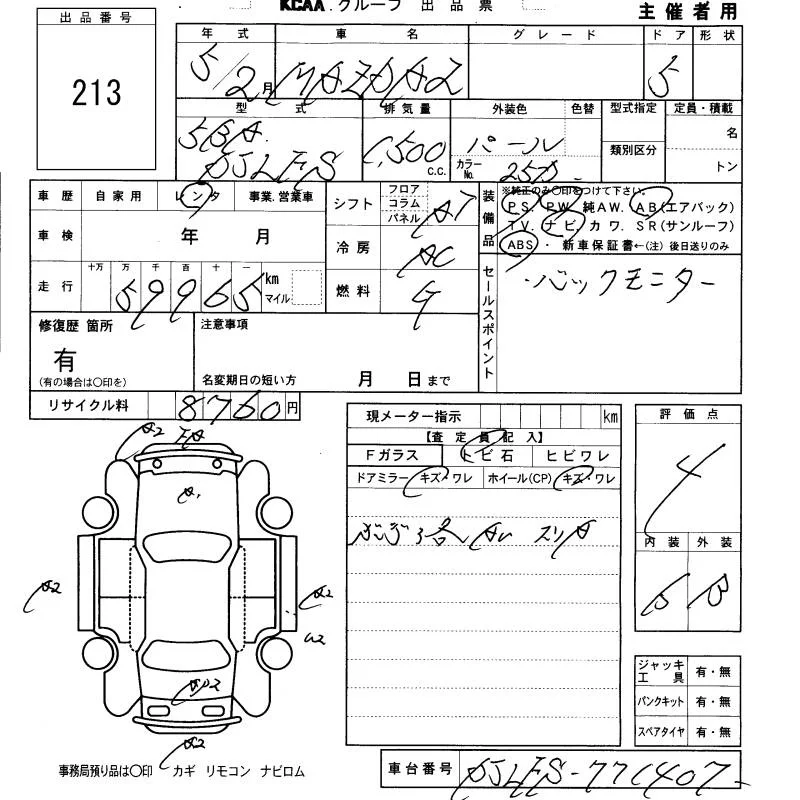 KCAA.グループ 出品票
主催者用
出品番号
213
年式 車名 グレード ドア 形状
5/2月 MAZDA2 5
型式 排気量 外装色 色替 型式指定 定員・積載
5BA. DJLFS 1,500 C.C. パール カラーNo. 25D 類別区分 名 トン
車歴 自家用 レンタ 事業.営業車
車検 年 月
走行 十万 万 千 百 十 一 59965 km マイル
シフト フロア コラム パネル AT
冷房 AC
燃料 G
装備品 ※純正のみ〇印をつけて下さい。
PS. PW. 純AW. AB(エアバック)
TV. ナビ. カワ. SR(サンルーフ)
ABS ・ 新車保証書←(注) 後日送りのみ
セールスポイント
・バックモニター
修復歴 箇所
有
(有の場合は〇印を)
注意事項
名変期日の短い方 月 日まで
リサイクル料 8760円
現メーター指示 km
【査定員記入】
Fガラス トビ石 ヒビワレ
ドアミラー キズ・ワレ ホイール(CP) キズ・ワレ
評価点
4
内装 外装
B B
A2
A1
A2
A2
A2
ジャッキ工具 有・無
パンクキット 有・無
スペアタイヤ 有・無
事務局預り品は〇印 カギ リモコン ナビロム
車台番号 DJLFS-771407